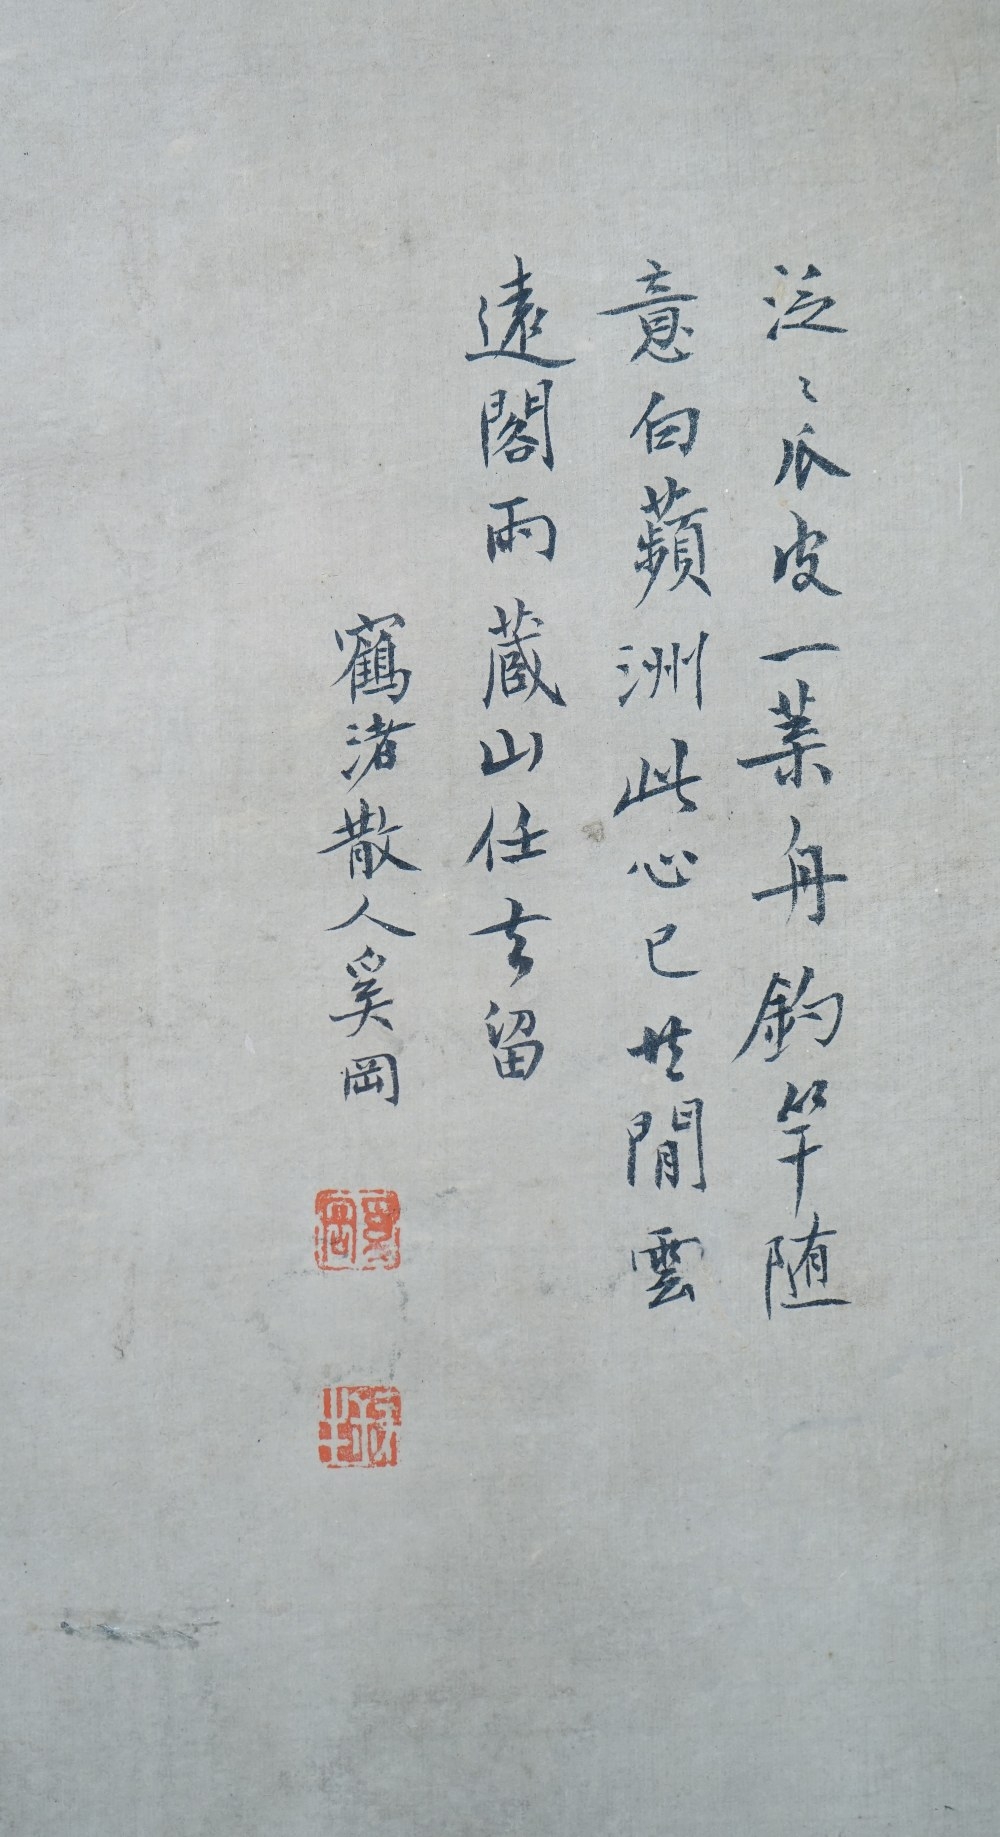 泛〻瓜皮一葉舟釣竿随
意白蘋洲此心已共閒雲
遠閣雨蔵山任去留
鶴渚散人奚岡
奚岡